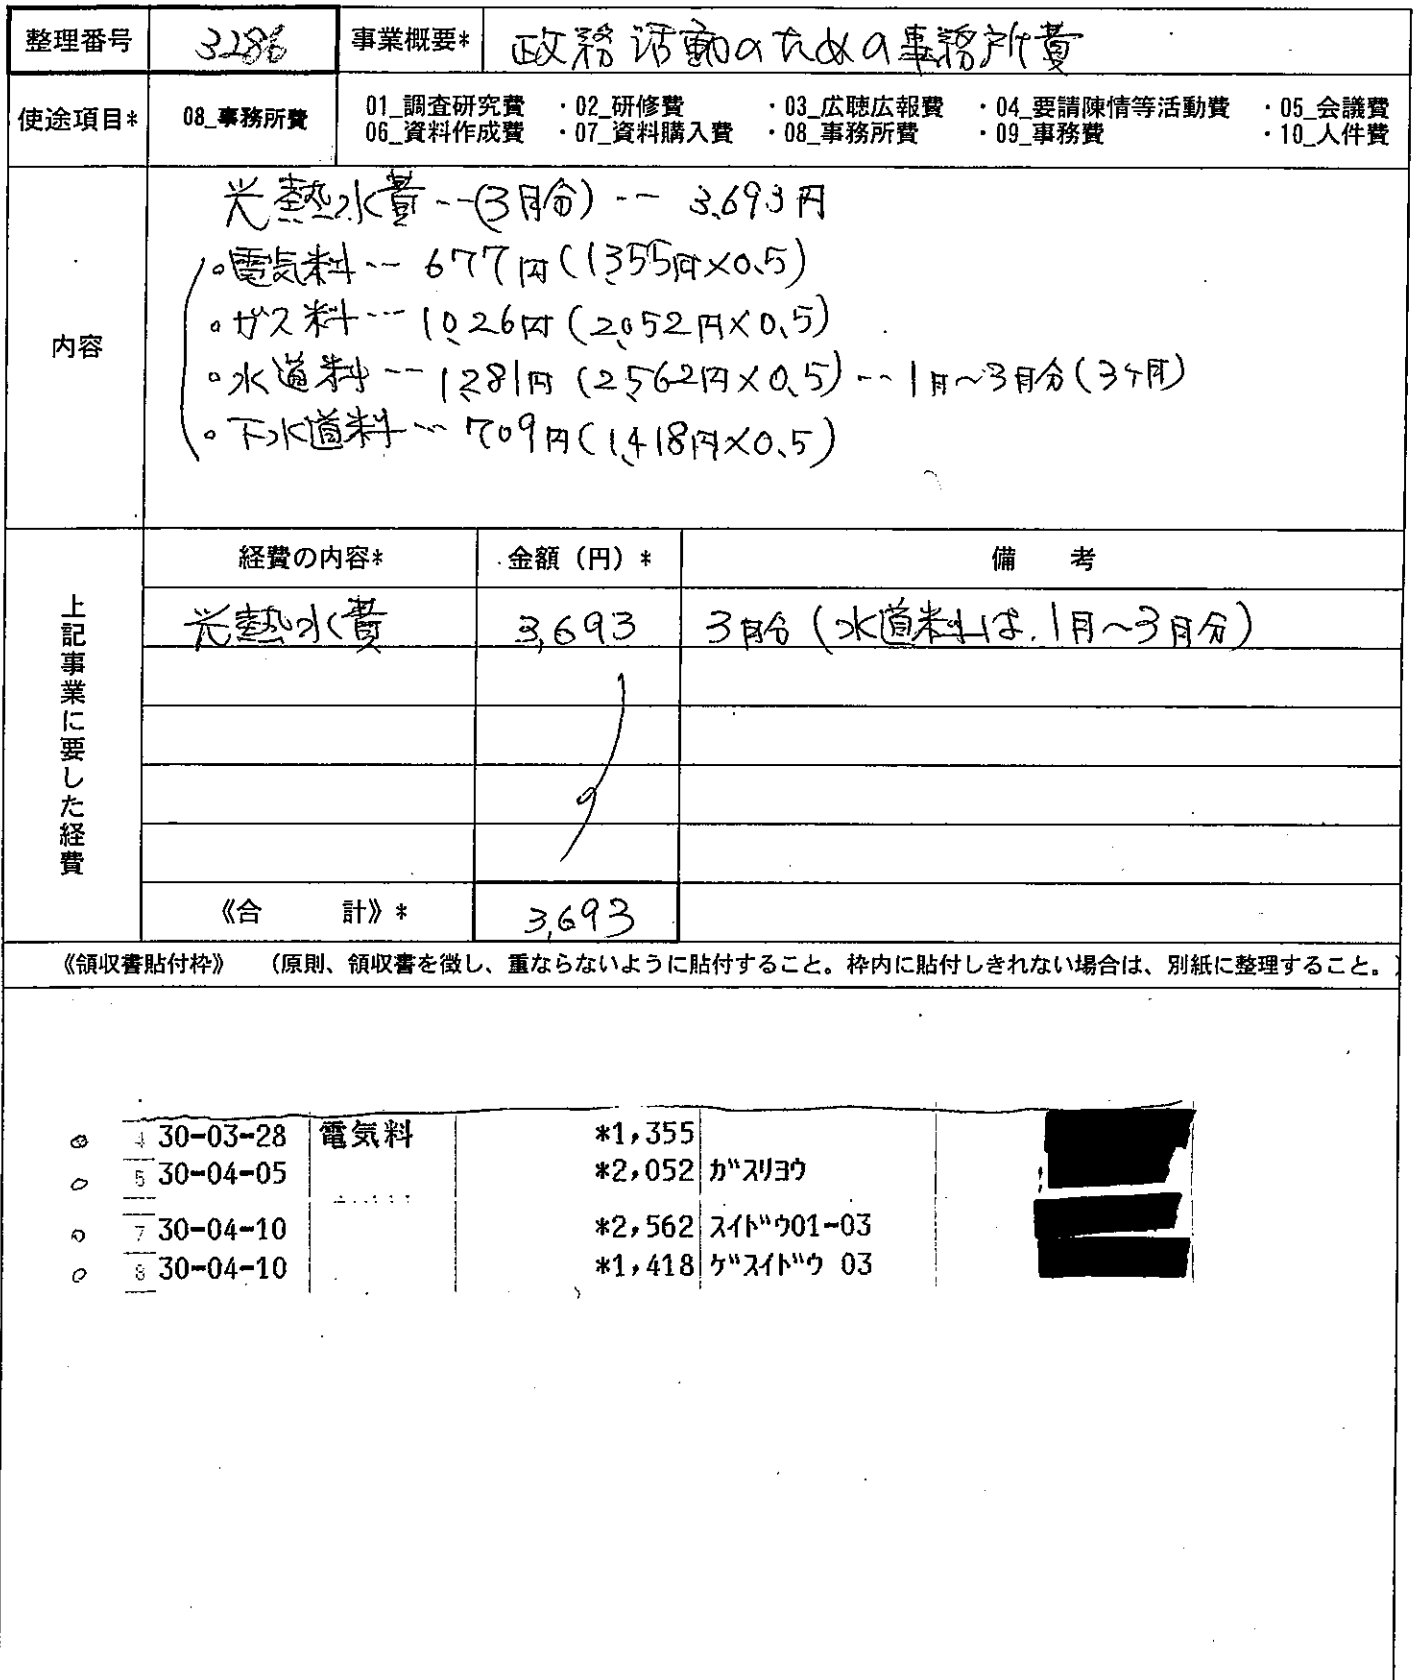 整理番号 3286 事業概要* 政務活動のための事務所費
使途項目* 08_事務所費 01_調査研究費 ・02_研修費 ・03_広聴広報費 ・04_要請陳情等活動費 ・05_会議費
06_資料作成費 ・07_資料購入費 ・08_事務所費 ・09_事務費 ・10_人件費
内容
光熱水費--(3月分)-- 3,693円
。電気料-- 677円(1,355円×0.5)
。ガス料--- 1,026円(2,052円×0.5)
。水道料--- 1,281円(2,562円×0.5)--1月~3月分(3ヶ月)
。下水道料--- 709円(1,418円×0.5)
上記事業に要した経費
経費の内容* 金額(円)* 備 考
光熱水費 3,693 3月分(水道料は、1月~3月分)
《合 計》* 3,693
《領収書貼付枠》 (原則、領収書を徴し、重ならないように貼付すること。枠内に貼付しきれない場合は、別紙に整理すること。)
4 30-03-28 電気料 *1,355
5 30-04-05 *2,052 ガスリヨウ
7 30-04-10 *2,562 スイドウ01-03
8 30-04-10 *1,418 ゲスイドウ 03